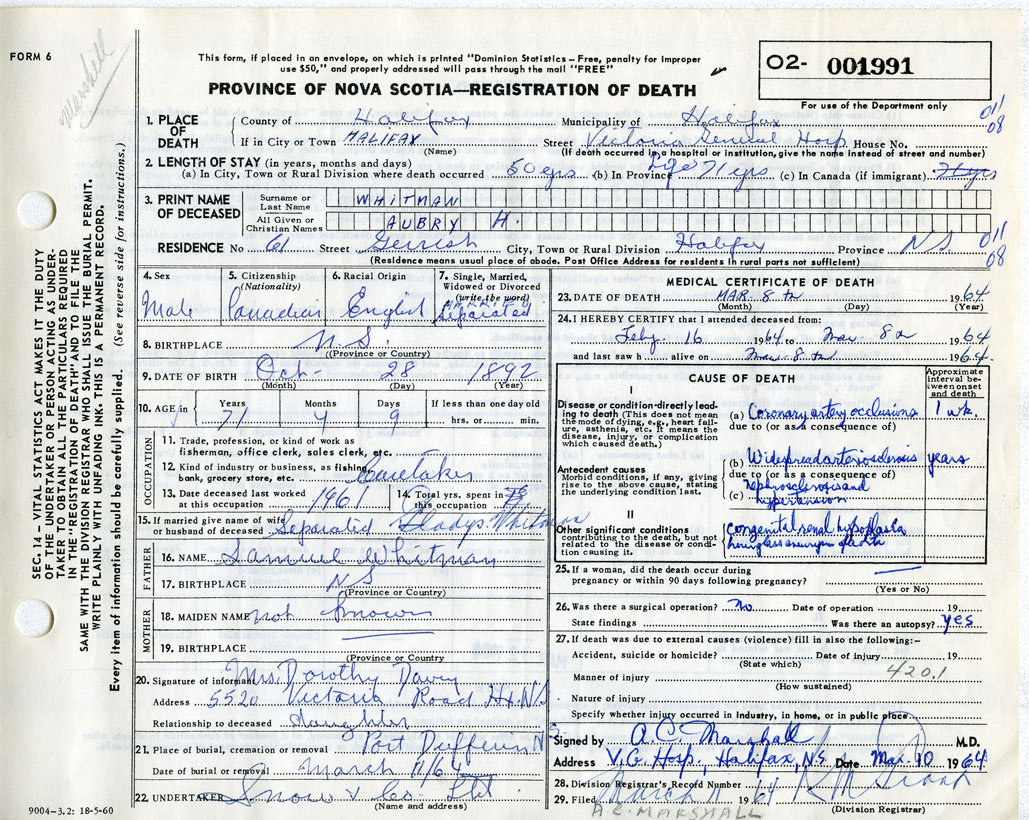 FORM 6
Marshall
This form, if placed in an envelope, on which is printed "Dominion Statistics – Free, penalty for improper
use $50," and properly addressed will pass through the mail "FREE"
PROVINCE OF NOVA SCOTIA—REGISTRATION OF DEATH
O2- 001991
For use of the Department only
011
08
1. PLACE OF DEATH { County of Halifax Municipality of Halifax
If in City or Town HALIFAX (Name) Street Victoria General Hosp. House No.
(If death occurred in a hospital or institution, give the name instead of street and number)
2. LENGTH OF STAY (in years, months and days)
(a) In City, Town or Rural Division where death occurred 50 yrs (b) In Province Life 71 yrs (c) In Canada (if immigrant) 71 yrs
3. PRINT NAME OF DECEASED { Surname or Last Name WHITMAN
All Given or Christian Names AUBRY H.
RESIDENCE No 61 Street Gerrish City, Town or Rural Division Halifax Province N.S. 011
08
(Residence means usual place of abode. Post Office Address for residents in rural parts not sufficient)
4. Sex Male
5. Citizenship (Nationality) Canadian
6. Racial Origin English
7. Single, Married, Widowed or Divorced (write the word) MARRIED Separated
8. BIRTHPLACE N.S. (Province or Country)
9. DATE OF BIRTH Oct- 28 1892
(Month) (Day) (Year)
10. AGE in { Years 71 Months 4 Days 9 If less than one day old hrs. or min.
OCCUPATION
11. Trade, profession, or kind of work as
fisherman, office clerk, sales clerk, etc.
12. Kind of industry or business, as fishing,
bank, grocery store, etc. Caretaker
13. Date deceased last worked at this occupation 1961
14. Total yrs. spent in this occupation
15. If married give name of wife
or husband of deceased Separated Gladys Whitman
FATHER
16. NAME Samuel Whitman
17. BIRTHPLACE NS
(Province or Country)
MOTHER
18. MAIDEN NAME not known
19. BIRTHPLACE
(Province or Country)
20. Signature of informant Mrs. Dorothy Davey
Address 5520 Victoria Road Hx. N.S.
Relationship to deceased daughter
21. Place of burial, cremation or removal Port Dufferin N.S.
Date of burial or removal March 11/64
22. UNDERTAKER Snow & Co Ltd.
(Name and address)
MEDICAL CERTIFICATE OF DEATH
23. DATE OF DEATH MAR. 8th 1964
(Month) (Day) (Year)
24. I HEREBY CERTIFY that I attended deceased from:
Feby. 16 1964 to Mar 8th 1964
and last saw h alive on Mar. 8th 1964.
CAUSE OF DEATH
Approximate interval between onset and death
I
Disease or condition directly leading to death (This does not mean the mode of dying, e.g., heart failure, asthenia, etc. It means the disease, injury, or complication which caused death.)
(a) Coronary artery occlusions 1 wk.
due to (or as a consequence of)
Antecedent causes
Morbid conditions, if any, giving rise to the above cause, stating the underlying condition last.
(b) Widespread arteriosclerosis years
due to (or as a consequence of)
(c) nephrosclerosis and hypertension
II
Other significant conditions
contributing to the death, but not related to the disease or condition causing it.
Congenital renal hypoplasia
hourglass aneurysm of aorta
25. If a woman, did the death occur during
pregnancy or within 90 days following pregnancy?
(Yes or No)
26. Was there a surgical operation? no. Date of operation 19
State findings Was there an autopsy? yes
27. If death was due to external causes (violence) fill in also the following:–
Accident, suicide or homicide? Date of injury 19
(State which)
4201
Manner of injury
(How sustained)
Nature of injury
Specify whether injury occurred in Industry, in home, or in public place
Signed by A.C. Marshall M.D.
Address V.G. Hosp., Halifax, N.S. Date Mar. 10 1964
28. Division Registrar's Record Number
29. Filed March 11 1964
(Division Registrar)
A.C. MARSHALL
SEC. 14 – VITAL STATISTICS ACT MAKES IT THE DUTY
OF THE UNDERTAKER OR PERSON ACTING AS UNDER-
TAKER TO OBTAIN ALL THE PARTICULARS REQUIRED
IN THE "REGISTRATION OF DEATH" AND TO FILE THE
SAME WITH THE DIVISION REGISTRAR WHO SHALL ISSUE THE BURIAL PERMIT.
WRITE PLAINLY WITH UNFADING INK. THIS IS A PERMANENT RECORD.
Every item of information should be carefully supplied. (See reverse side for instructions.)
9004–3.2: 18-5-60